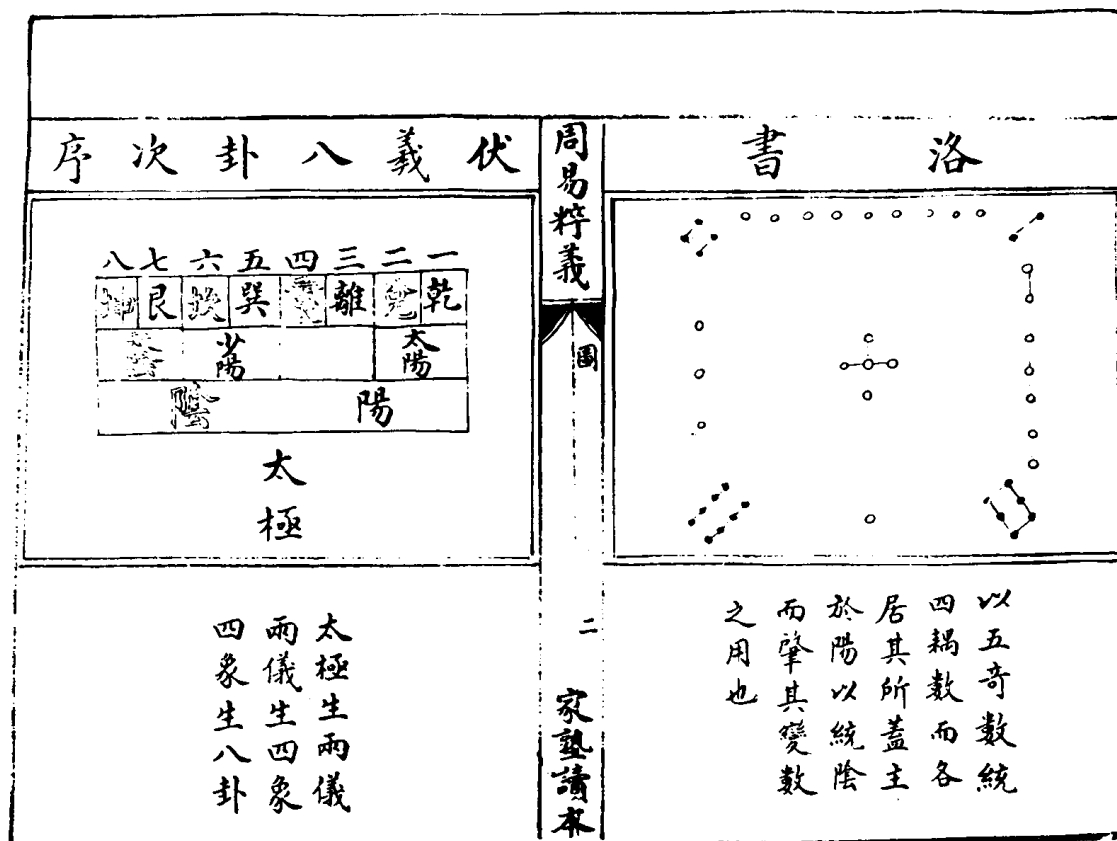 洛書
以五奇數統
四耦數而各
居其所蓋主
於陽以統陰
而肇其變數
之用也
周易粹義
圖
二
家塾讀本
伏羲八卦次序
一二三四五六七八
乾兌離震巽坎艮坤
太陽
少陽
陽陰
太
極
太極生兩儀
兩儀生四象
四象生八卦